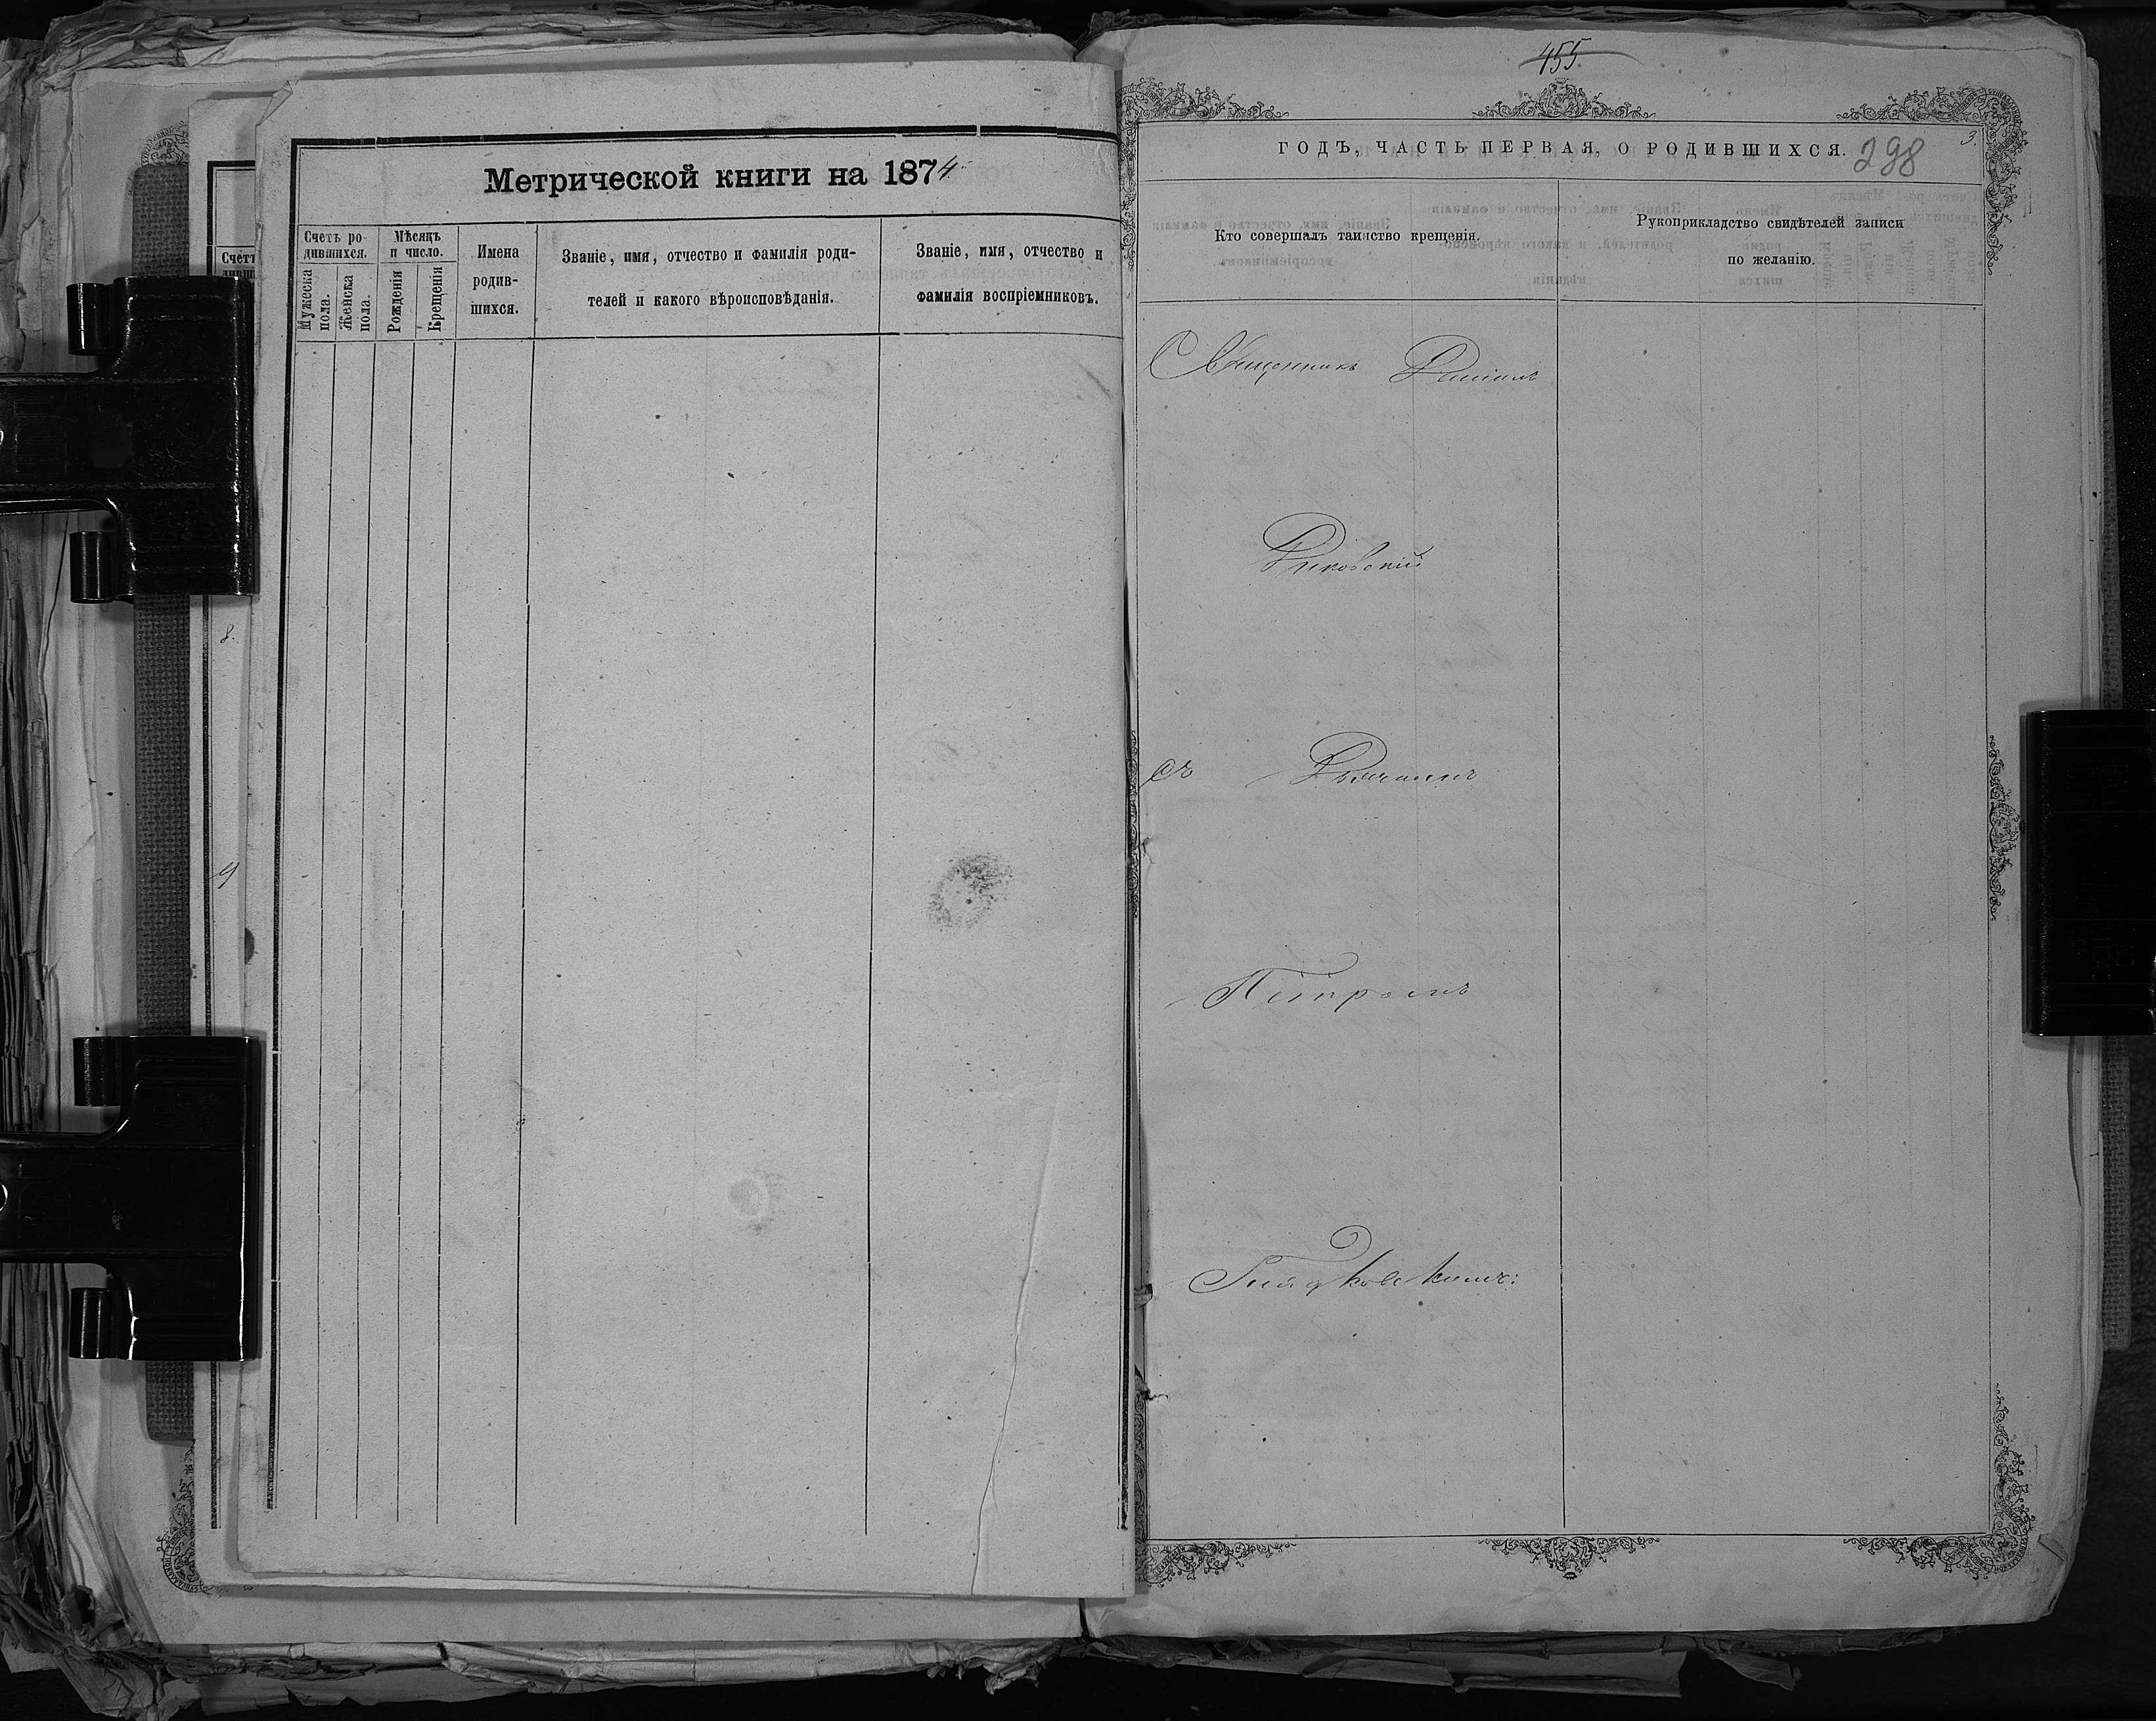 Метрической книги на 1874
Счетъ ро-
дившихся.
Мужеска
пола.
Женска
пола.
Мѣсяцъ
и число.
Рожденія
Крещенія
Имена
родив-
шихся.
Званіе, имя, отчество и фамилія роди-
телей и какого вѣроисповѣданія.
Званіе, имя, отчество и
фамилія воспріемниковъ.
8.
9
455
3.
ГОДЪ, ЧАСТЬ ПЕРВАЯ, О РОДИВШИХСЯ. 298
Кто совершалъ таинство крещенія.
Рукоприкладство свидѣтелей записи
по желанію.
Священникъ
съ